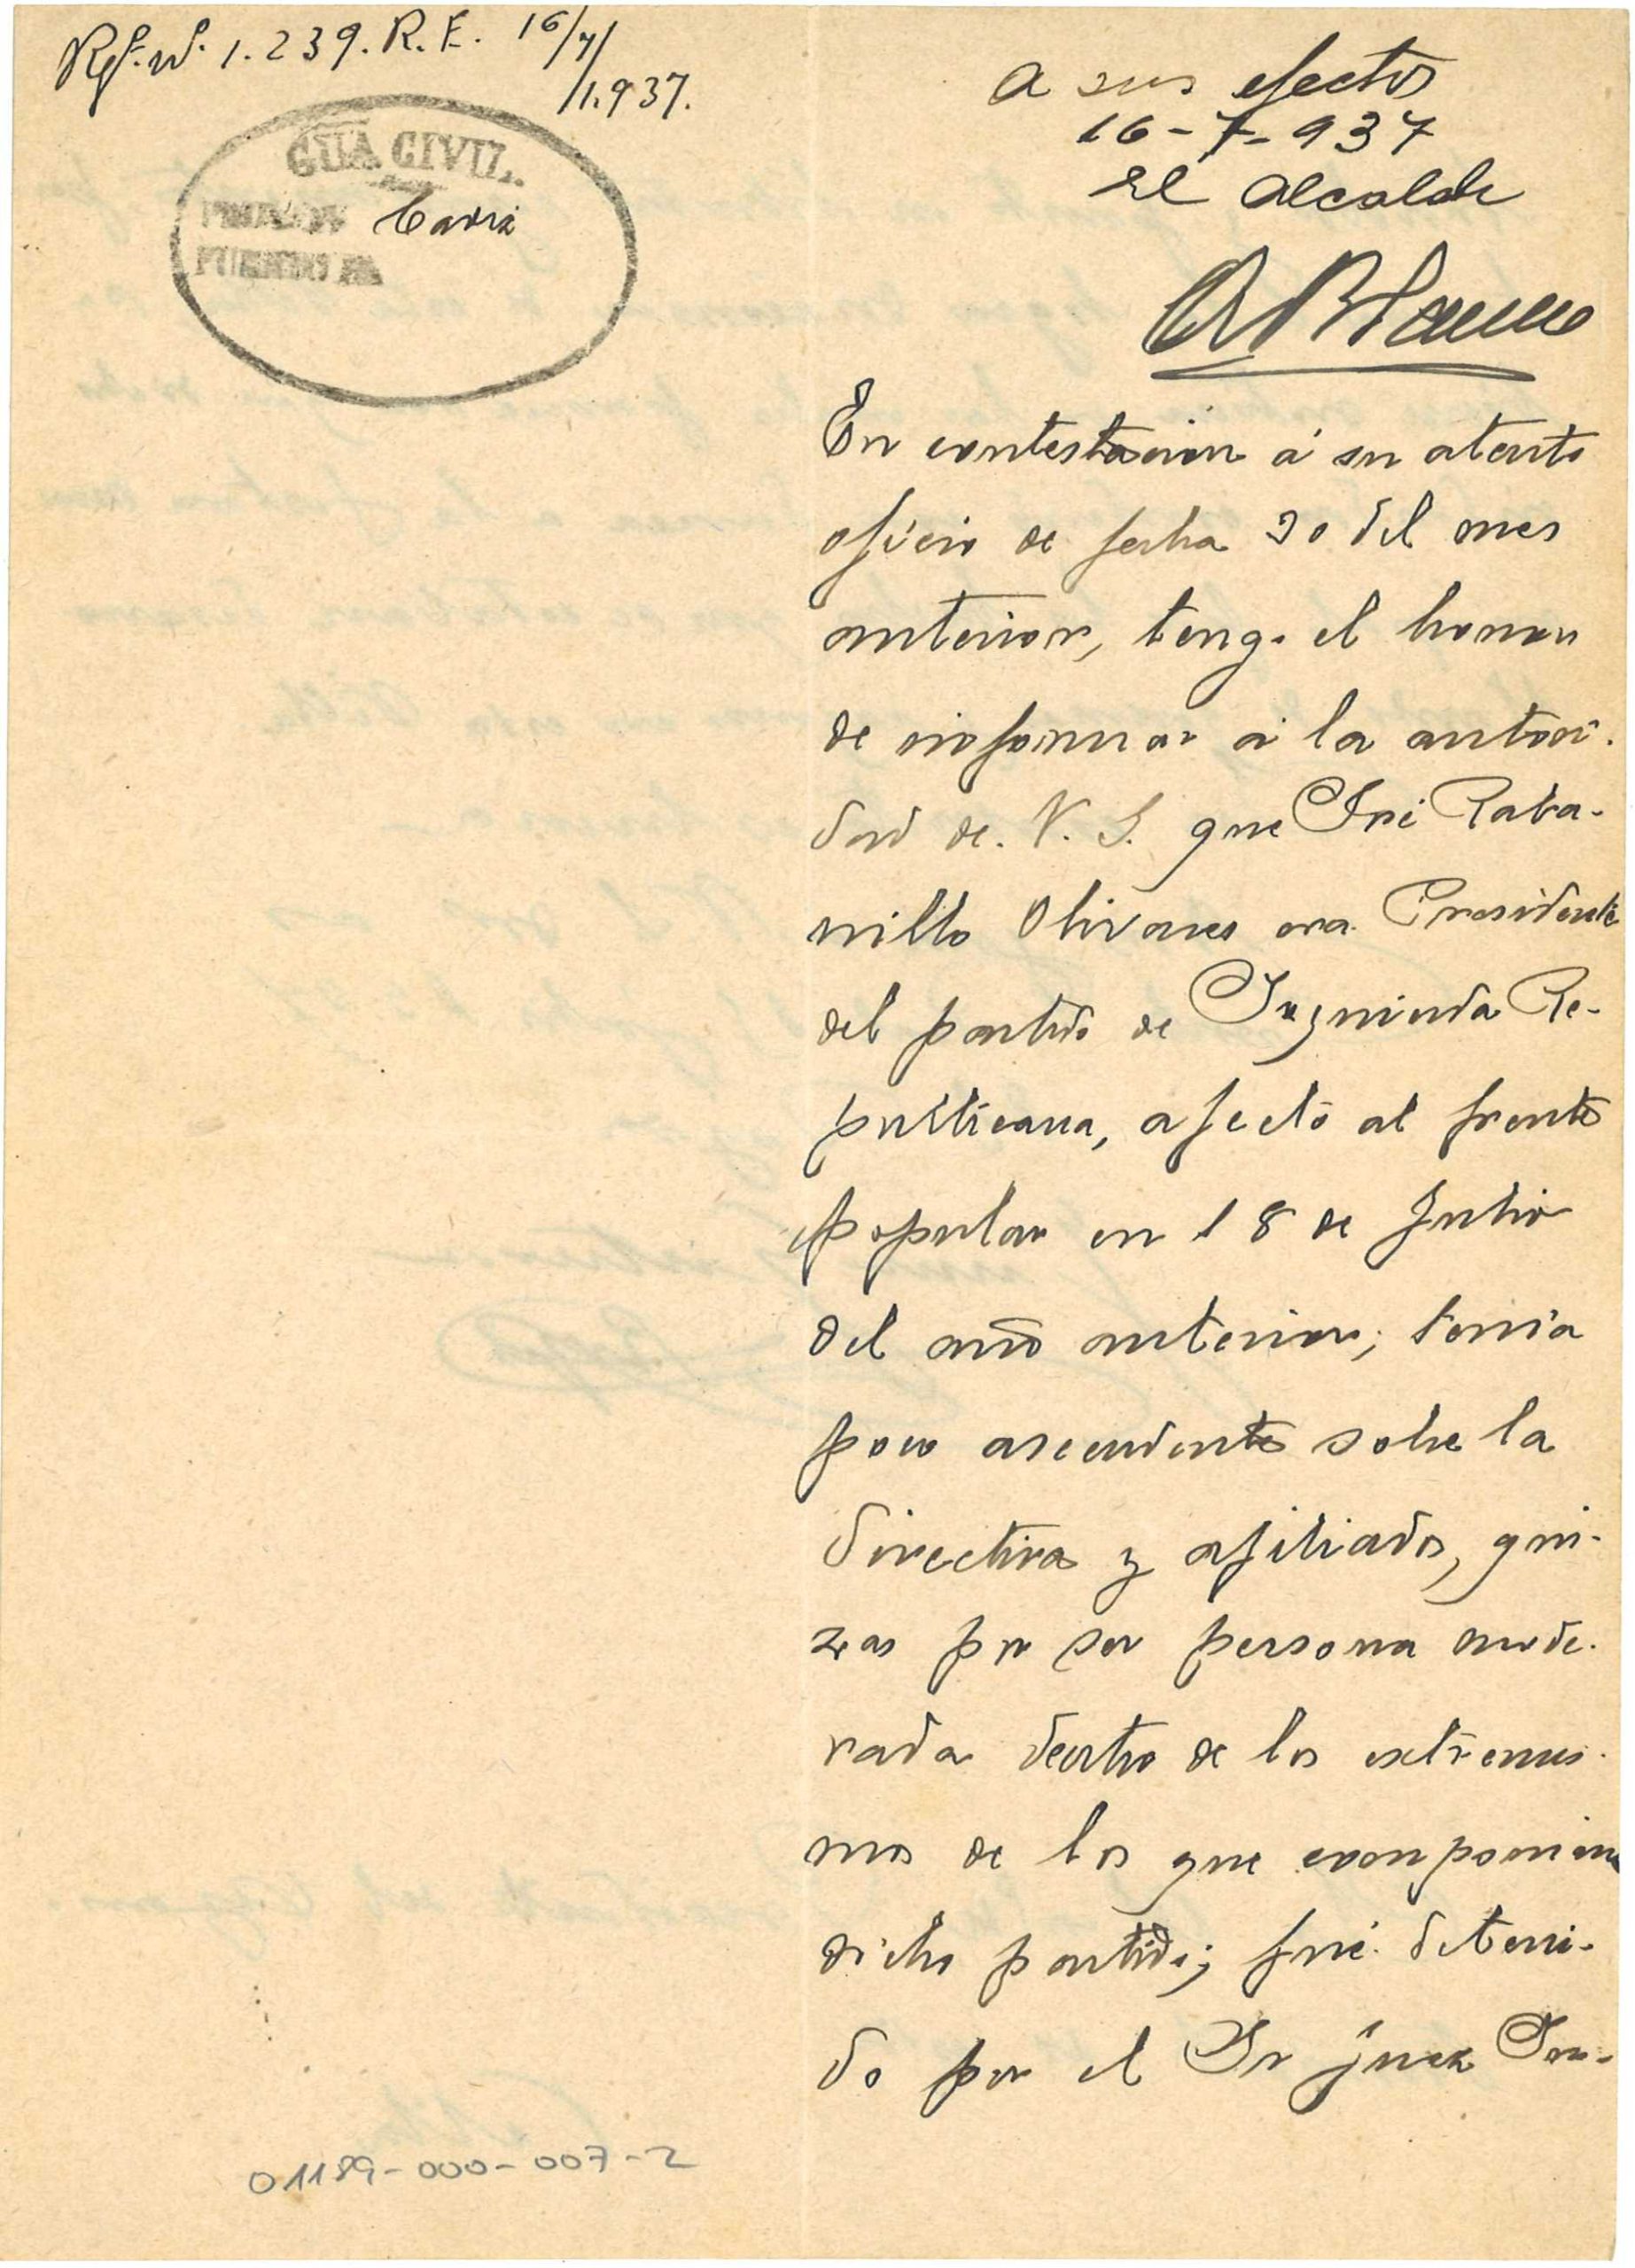 Rgº. nº. 1.239. R.E. 16/7/
/1.937.
GUA CIVIL.
PUESTO DE
a sus efectos
16-7-937
El Alcalde
A Blanco
En contestación á su atento
oficio de fecha 30 del mes
anterior, tengo el honor
de informar á la autori-
dad de. V. S. que José Raba-
nillo Olivares era Presidente
del partido de Izquierda Re-
publicana, afecto al frente
popular en 18 de Julio
del año anterior; tenía
poco ascendente sobre la
directiva y afiliados, qui-
zas por ser persona mode-
rada dentro de los extremis-
mos de los que componían
dicho partido; fué deteni-
do por el Sr juez Ins-
01189-000-007-2